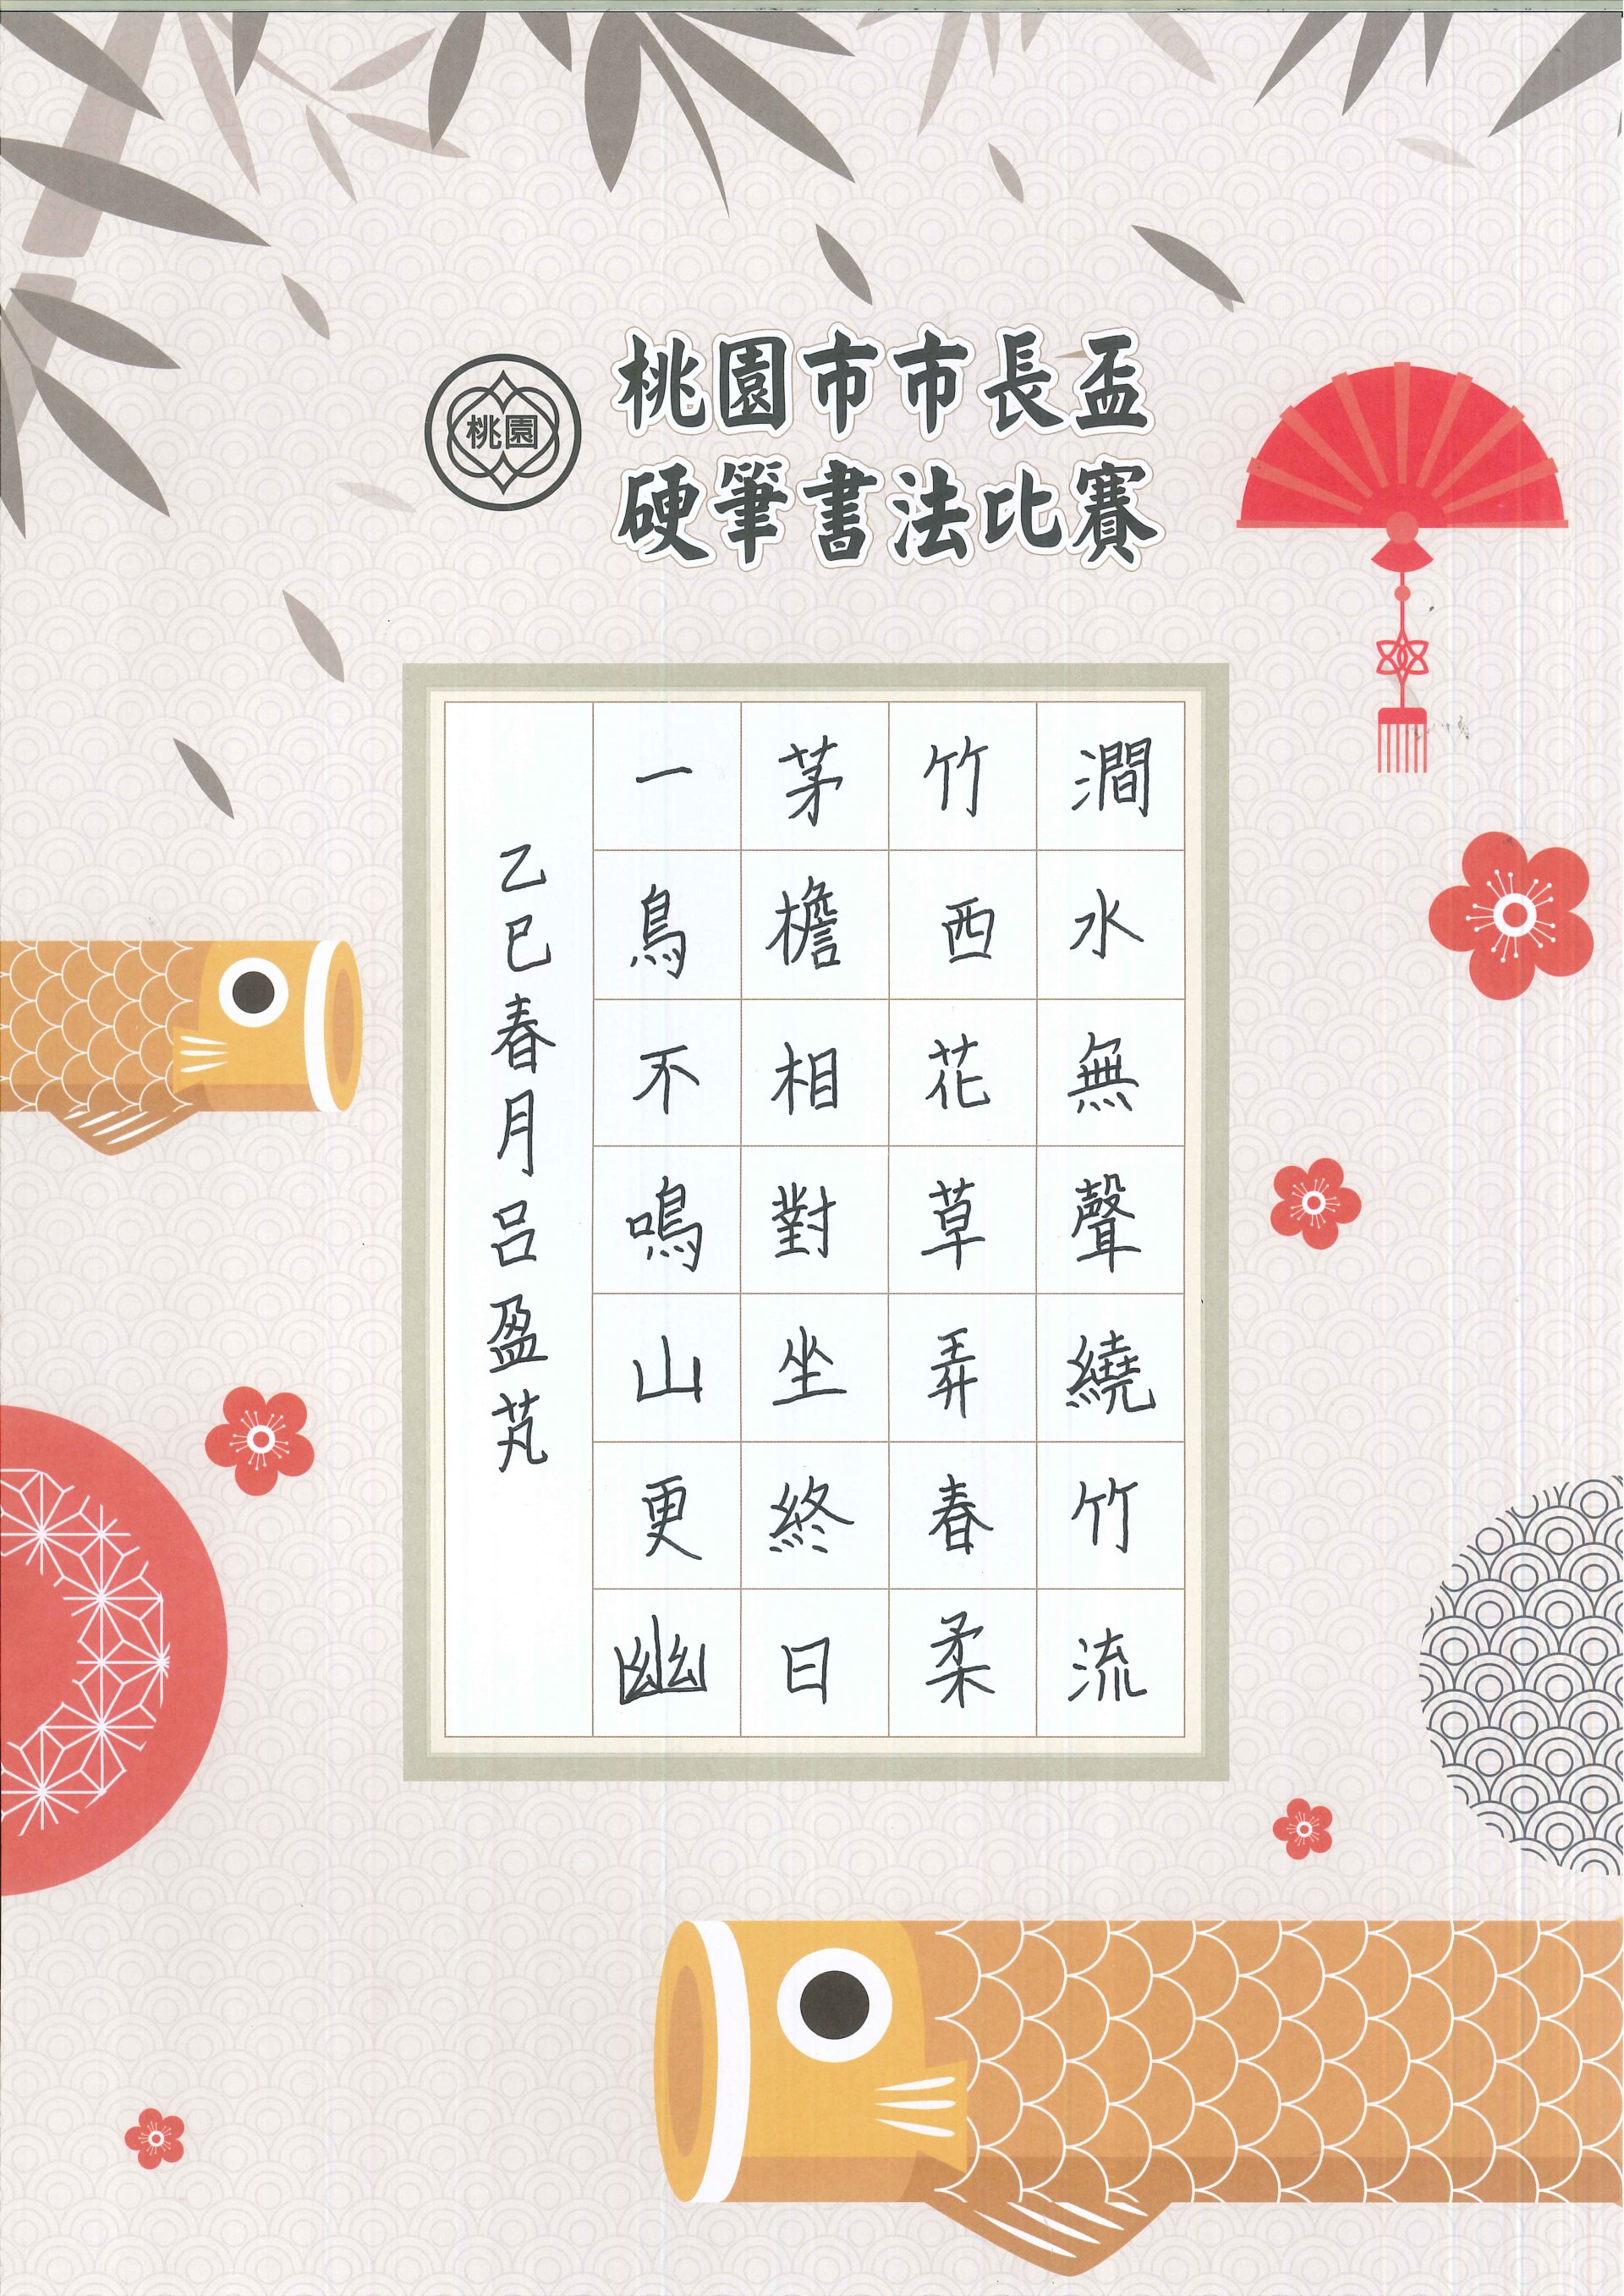 桃園市市長盃
硬筆書法比賽
桃園
澗水無聲繞竹流
竹西花草弄春柔
茅檐相對坐終日
一鳥不鳴山更幽
乙巳春月呂盈芃